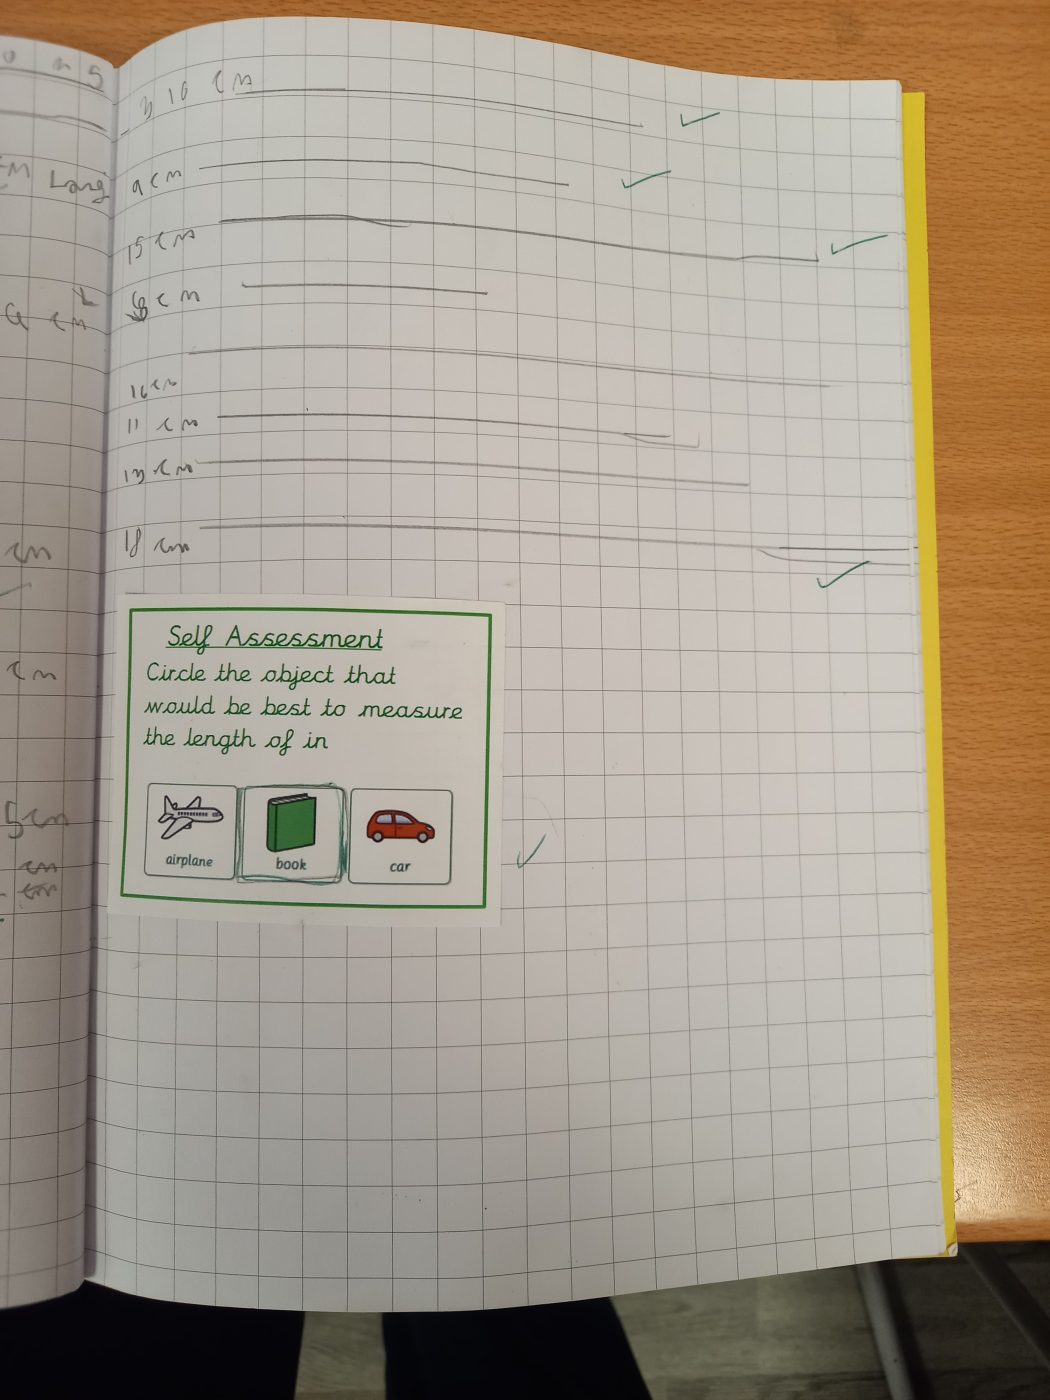 10 cm
9 cm
Long
15 cm
cm
cm
16 cm
11 cm
13 cm
18 cm
cm
cm
5cm
cm
cm
Self Assessment
Circle the object that
would be best to measure
the length of in
airplane
book
car